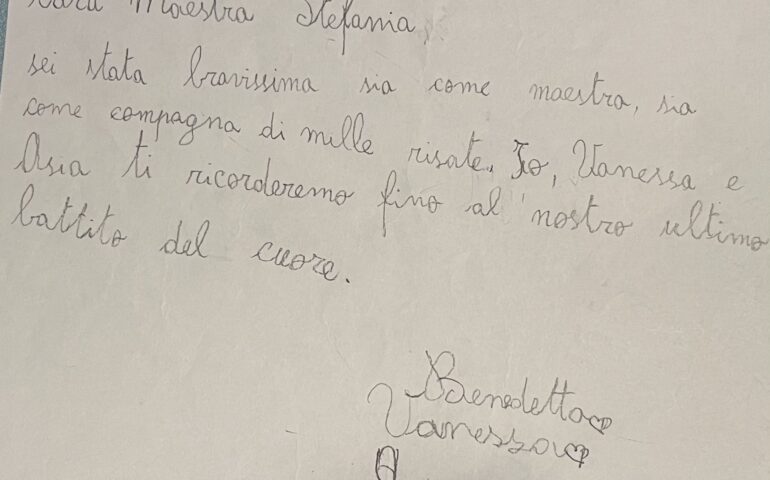 Cara Maestra Stefania,
sei stata bravissima sia come maestra, sia
come compagna di mille risate. Io, Vanessa e
Asia ti ricorderemo fino al nostro ultimo
battito del cuore.
Benedetta
Vanessa
A